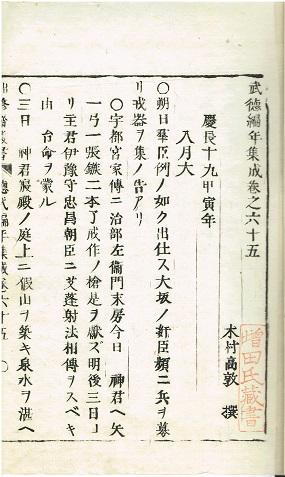 武德編年集成卷之六十五
木村高敦 撰
增田氏藏書
慶長十九甲寅年
八月大
○朔日羣臣例ノ如ク出仕ス大坂ノ奸臣頻ニ兵ヲ募
リ戎器ヲ集ノ告アリ
○宇都宮家傳ニ治部左衞門末房今日 神君ヘ矢
一弓一張鏃二本丁戒作ノ槍是ヲ獻ズ明後三日ヨ
リ主君伊豫守忠昌朝臣ニ艾蓬射法相傳ヲスベキ
由 台命ヲ蒙ル
○三日 神君寢殿ノ庭上ニ假山ヲ築キ泉水ヲ湛ヘ
武編年集成卷六十五